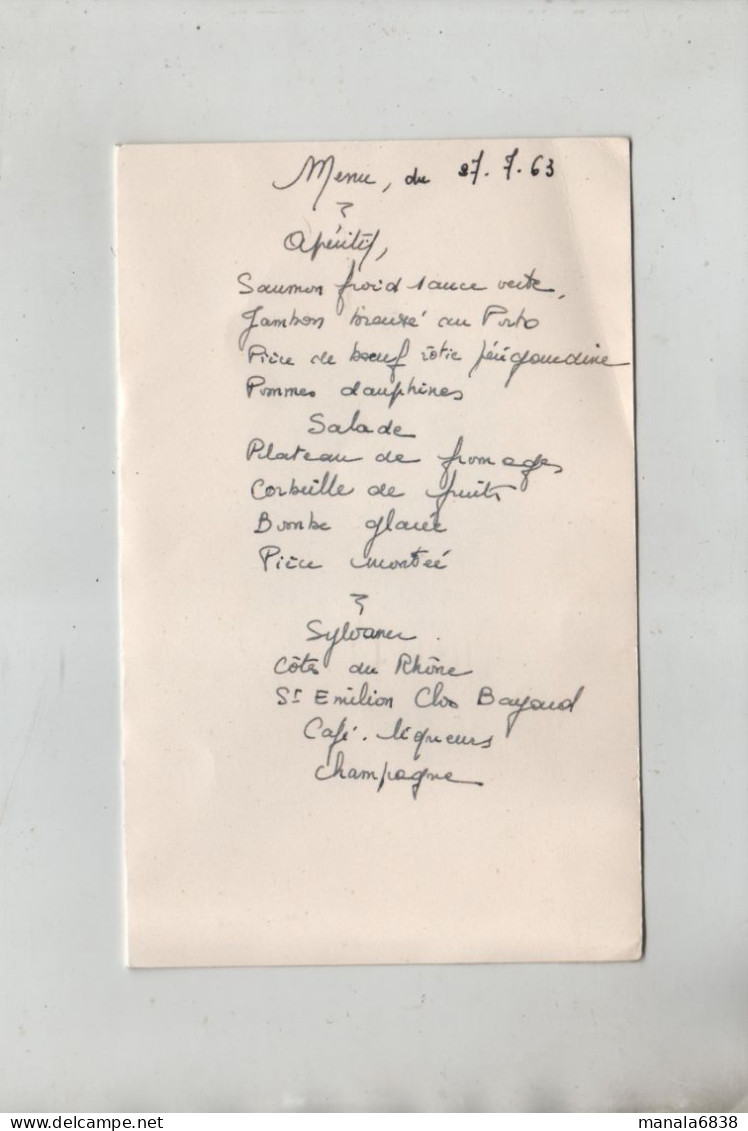 Menu, du 27.7.63
Apéritif,
Saumon froid sauce verte,
Jambon braisé au Porto
Pièce de boeuf rôtie périgourdine
Pommes dauphines
Salade
Plateau de fromages
Corbeille de fruits
Bombe glacée
Pièce montée
Sylvaner.
Côtes du Rhône
St Emilion Clos Bayard
Café. liqueurs
Champagne
manala6838